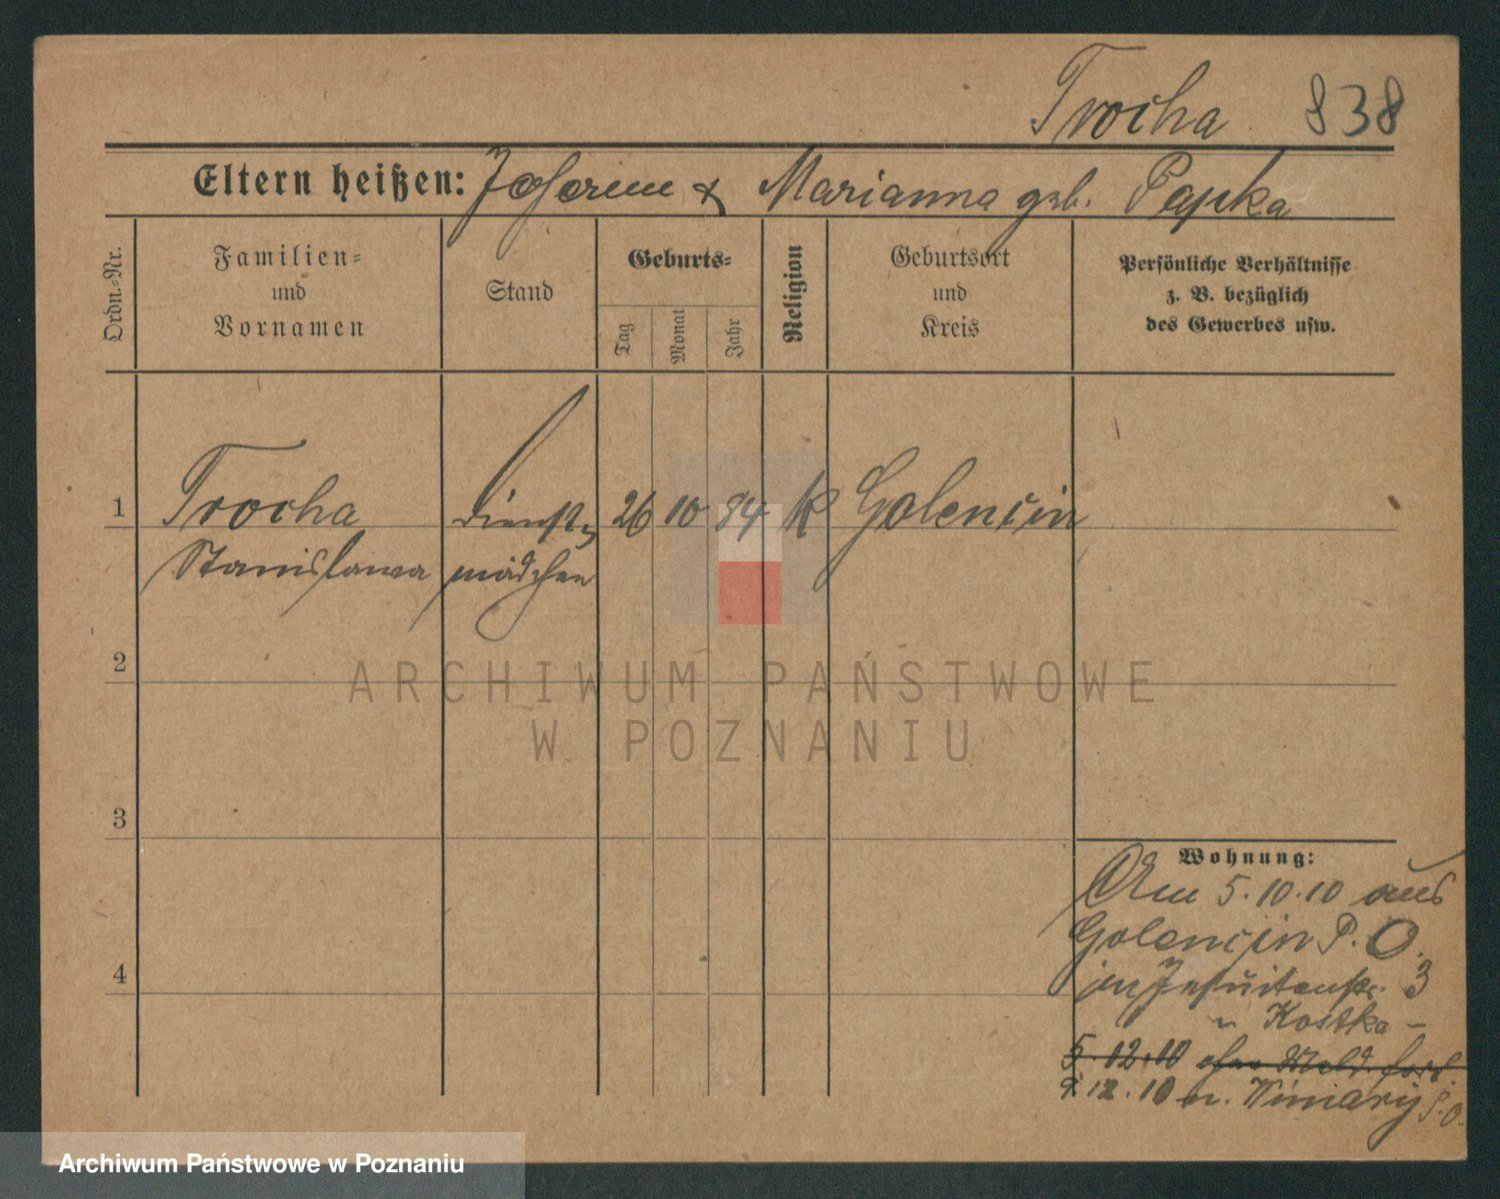 Trocha 838
Eltern heißen: & Marianna geb. Papka
Ordn.-Nr.
Familien-
und
Vornamen
Stand
Geburts-
Tag
Monat
Jahr
Religion
Geburtsort
und
Kreis
Persönliche Verhältnisse
z. B. bezüglich
des Gewerbes usw.
1 Trocha Dienst- 26 10 84 K Golencin
Stanislawa mädchen
2
ARCHIWUM PAŃSTWOWE
W POZNANIU
3
Wohnung:
Am 5.10.10 aus
Golencin P. O.
Jesuitenstr. 3
Kostka -
4
5.12.10 ohne Meld. fort
9.12.10 n. Winiary P.O.
Archiwum Państwowe w Poznaniu